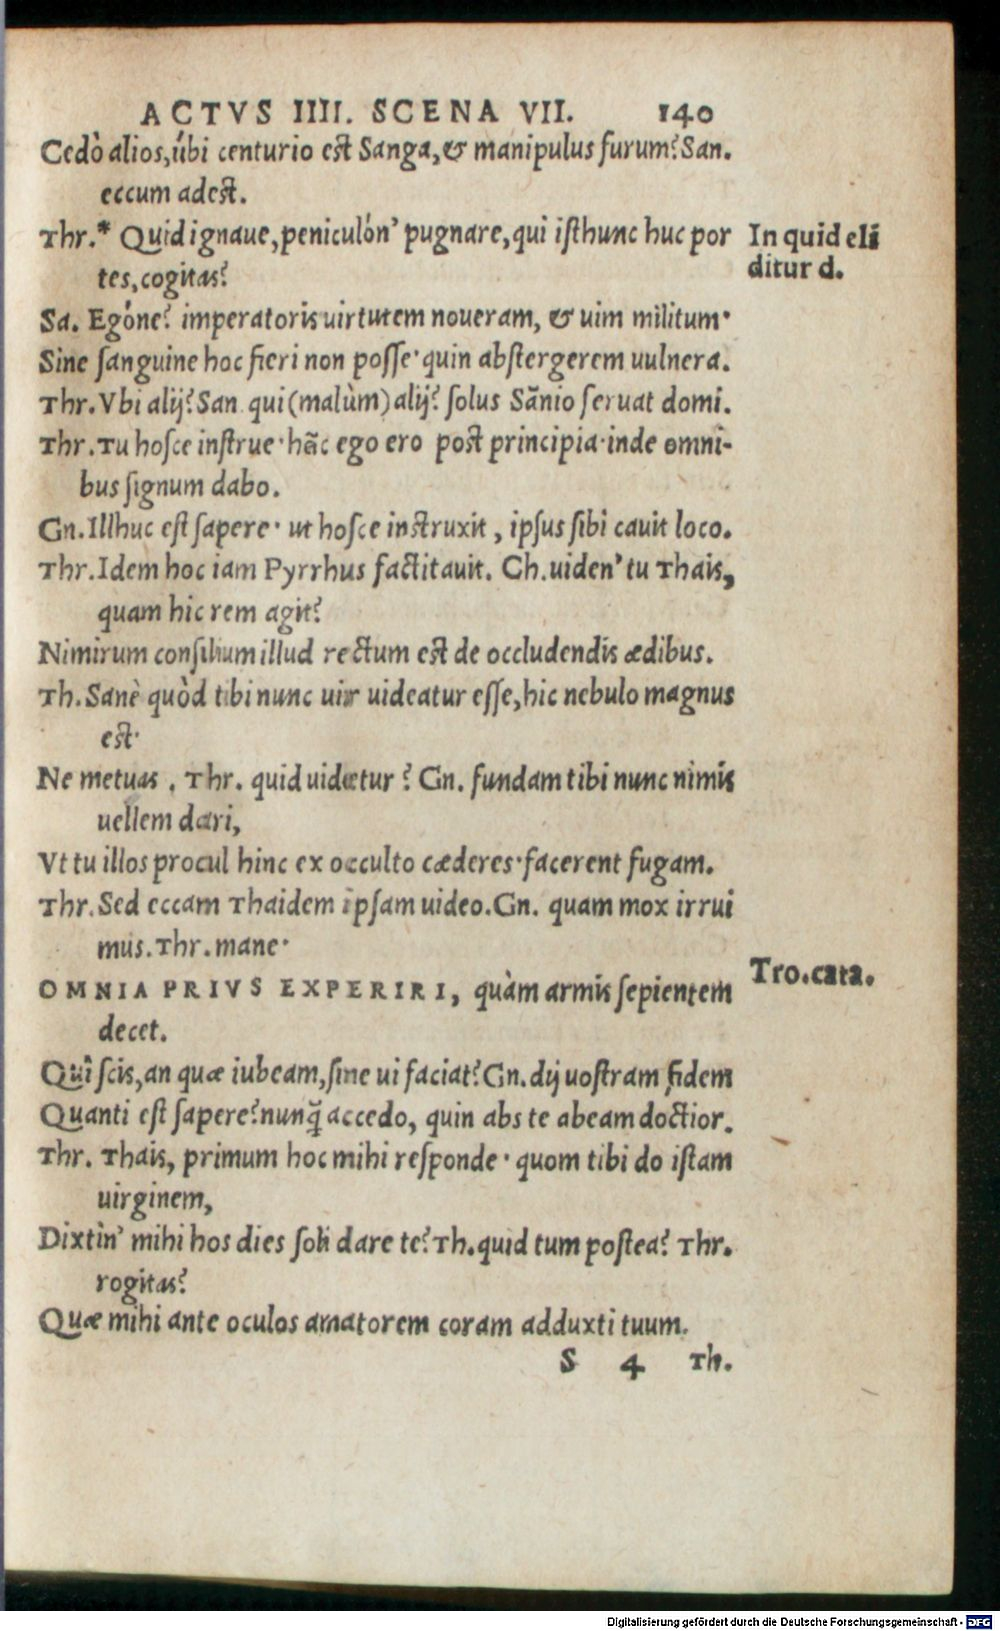 ACTVS IIII. SCENA VII. 140
Cedò alios, úbi centurio est Sanga, & manipulus furum? San.
eccum adest.
Thr.* Quid ignaue, peniculón' pugnare, qui isthunc huc por
tes, cogitas?
In quid eli
ditur d.
Sa. Egóne? imperatoris uirtutem noueram, & uim militum·
Sine sanguine hoc fieri non posse· quin abstergerem uulnera.
Thr. Vbi alij? San. qui (malùm) alij? solus Sãnio seruat domi.
Thr. Tu hosce instrue· hãc ego ero post principia· inde omni-
bus signum dabo.
Gn. Illhuc est sapere· ut hosce instruxit, ipsus sibi cauit loco.
Thr. Idem hoc iam Pyrrhus factitauit. Ch. uiden' tu Thais,
quam hic rem agit?
Nimirum consilium illud rectum est de occludendis ædibus.
Th. Sanè quòd tibi nunc uir uideatur esse, hic nebulo magnus
est·
Ne metuas. Thr. quid uidetur? Gn. fundam tibi nunc nimis
uellem dari,
Vt tu illos procul hinc ex occulto cæderes· facerent fugam.
Thr. Sed eccam Thaidem ipsam uideo. Gn. quam mox irrui
mus. Thr. mane·
Tro.cata.
OMNIA PRIVS EXPERIRI, quàm armis sepientem
decet.
Quî scis, an quæ iubeam, sine ui faciat? Gn. dij uostram fidem
Quanti est sapere? nunq̃ accedo, quin abs te abeam doctior.
Thr. Thais, primum hoc mihi responde· quom tibi do istam
uirginem,
Dixtin' mihi hos dies soli dare te? Th. quid tum postea? Thr.
rogitas?
Quæ mihi ante oculos amatorem coram adduxti tuum.
S 4 Th.
Digitalisierung gefördert durch die Deutsche Forschungsgemeinschaft - DFG